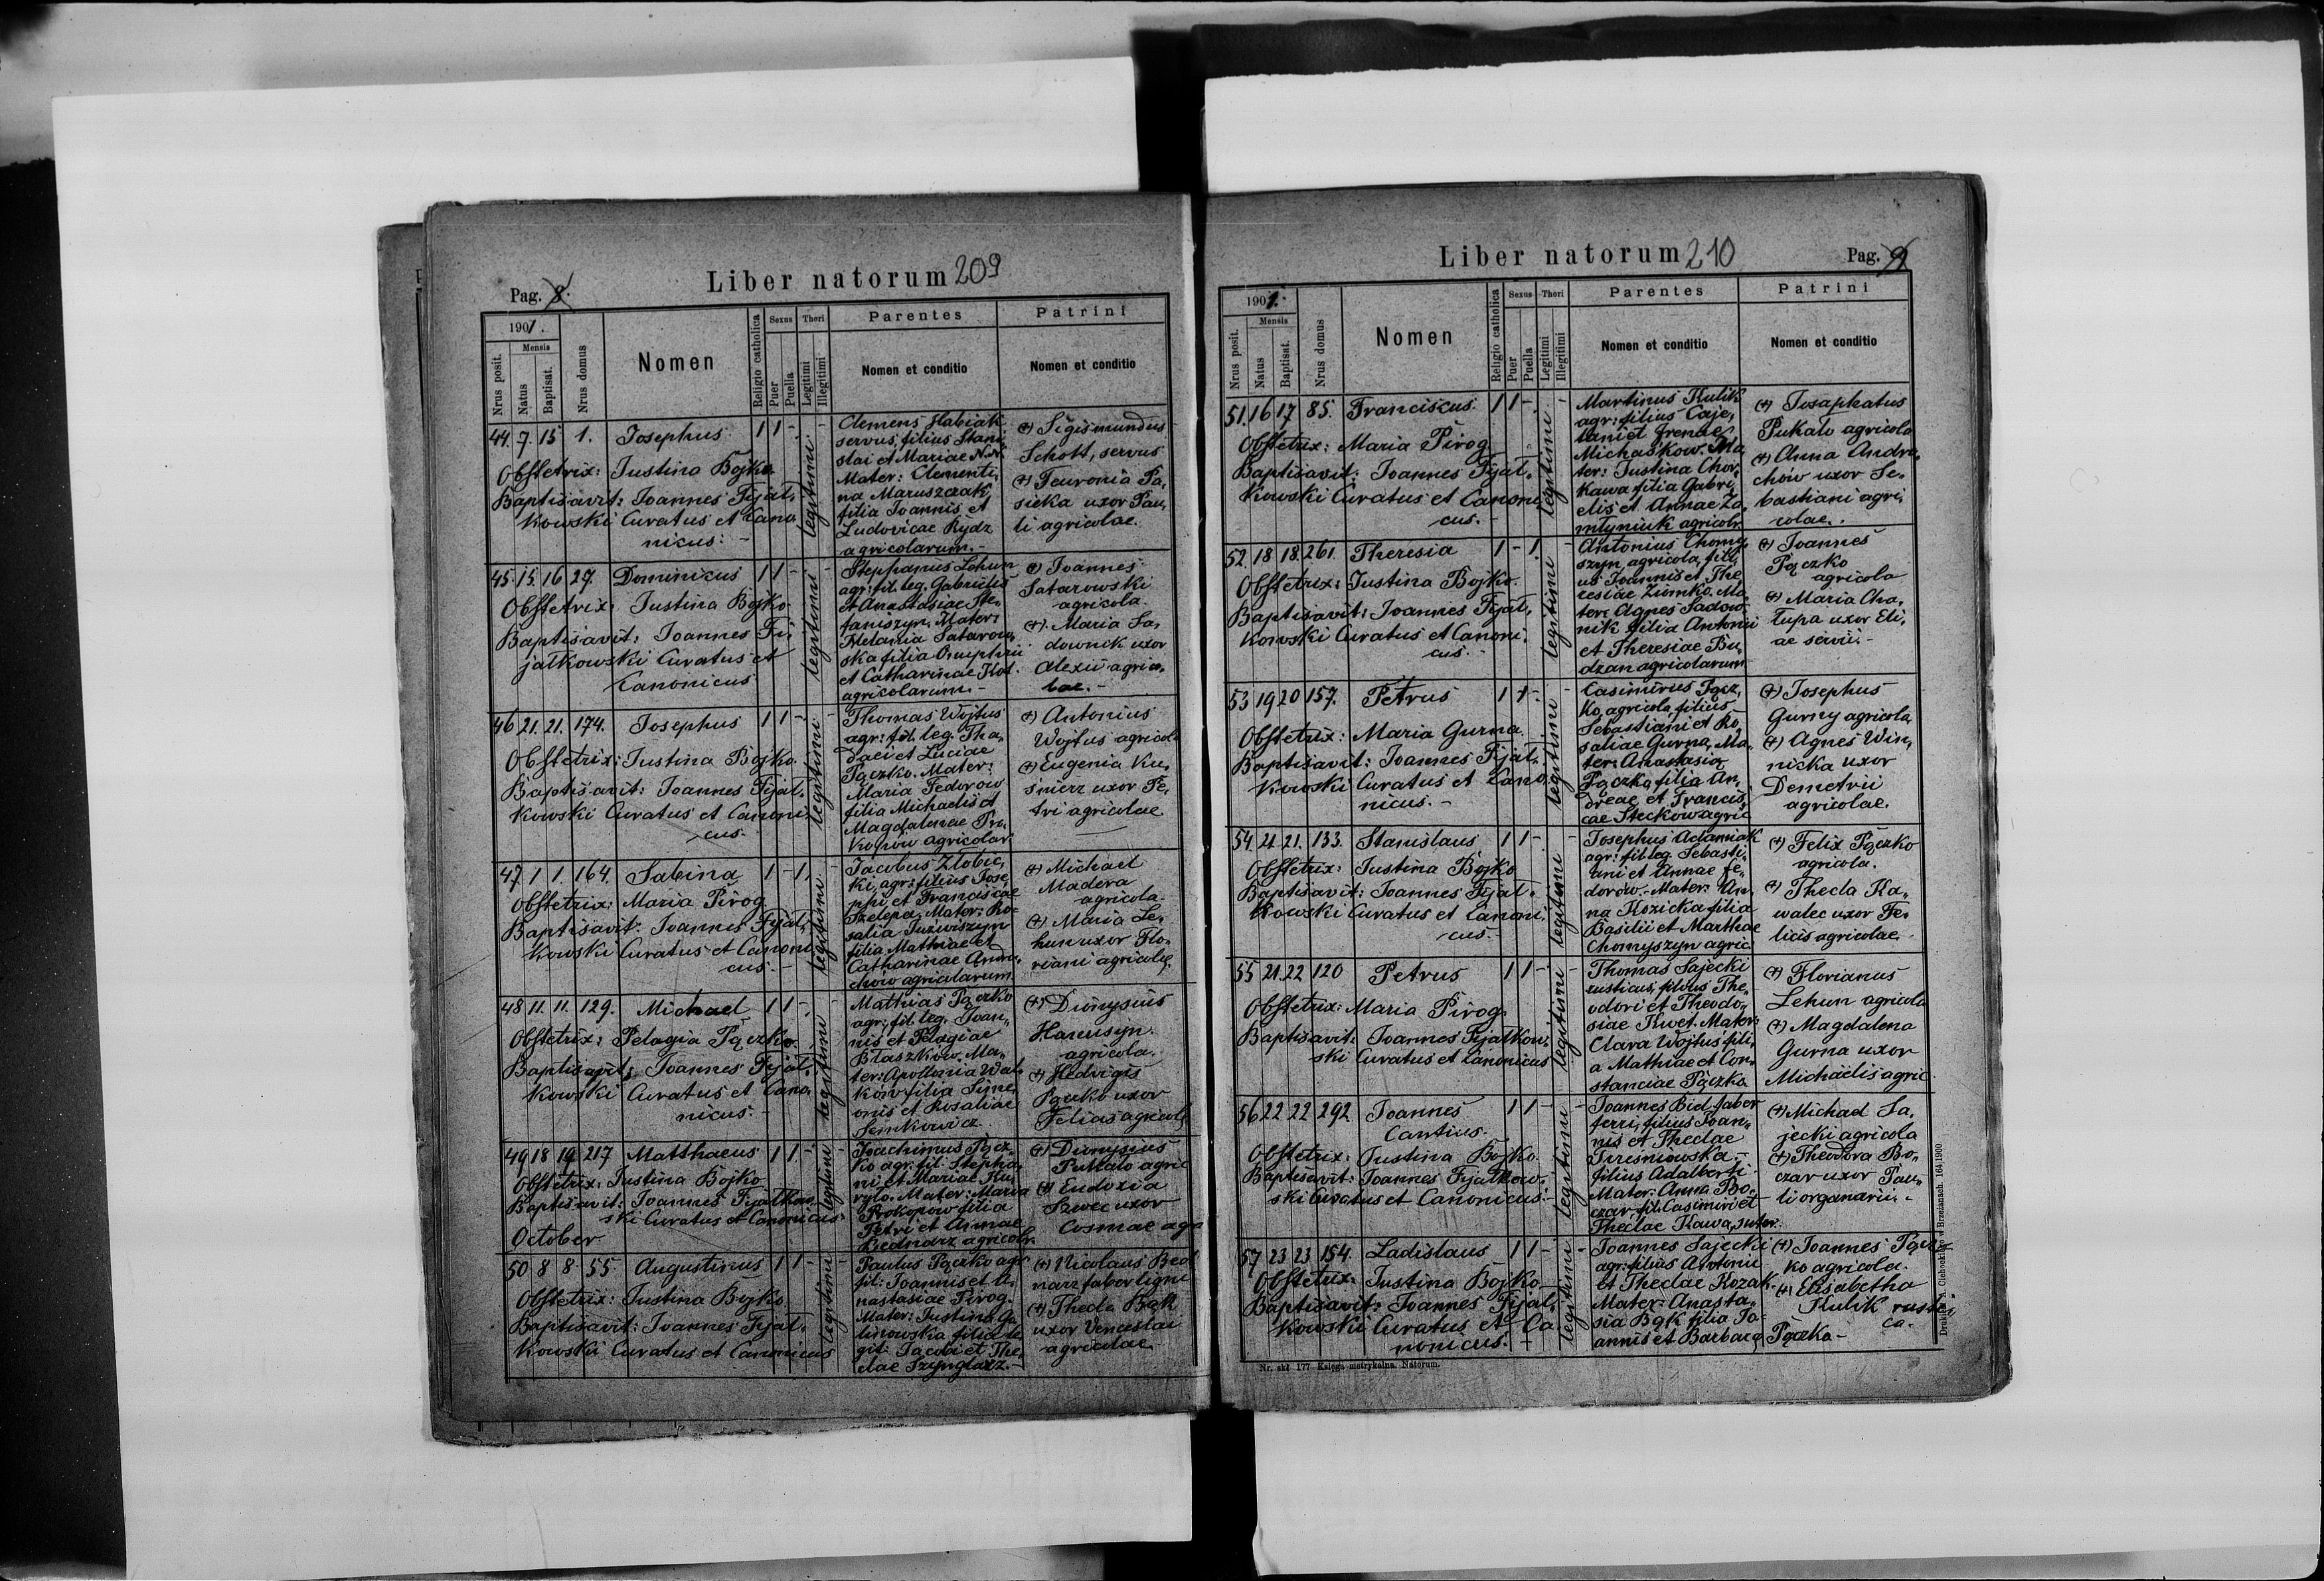 Pag. 8.
Liber natorum 209
1901.
Nrus posit.
Mensis
Natus
Baptisat.
Nrus domus
Nomen
Religio catholica
Sexus
Puer
Puella
Thori
Legitimi
Illegitimi
Parentes
Nomen et conditio
Patrini
Nomen et conditio
44. 7. 15 1. Josephus 1 1 - legitimi -
Obstetrix: Justina Bojko
Baptisavit: Joannes Fijał-
kowski Curatus et Cano
nicus: -
Clemens Habiak
servus, filius Stani-
slai et Mariae N.N.
Mater: Clementi-
na Maruszczak,
filia Joannis et
Ludovicae Rydz
agricolarum. -
(+) Sigismundus
Schott, servus
(+) Feuronia Pa-
sieka uxor Pau-
li agricolae.
45. 15. 16 27. Dominicus 1 1 - legitimi -
Obstetrix: Justina Bojko
Baptisavit: Joannes Fi-
jałkowski Curatus et
Canonicus
Stephanus Lehun
agr: fil. leg. Gabrielis
et Anastasiae Ste-
faniszyn, Mater:
Melania Satarow-
ska filia Onuphrii
et Catharinae Kot
agricolarum. -
(+) Joannes
Satarowski
agricola.
(+) Maria Sa-
downik uxor
Alexii agrico-
lae. -
46 21. 21. 174. Josephus 1 1 - legitimi -
Obstetrix: Justina Bojko
Baptisavit: Joannes Fijał-
kowski Curatus et Canoni-
cus.
Thomas Wojtus
agr: fil. leg. Tha-
daei et Luciae
Pączko. Mater:
Maria Fedorow
filia Michaelis et
Magdalenae Pro-
kopów agricolar
(+) Antonius
Wojtus agricola
(+) Eugenia Ku-
śnierz uxor Pe-
tri agricolae
47 1 1. 164. Sabina 1 - 1. legitimi -
Obstetrix: Maria Pirog
Baptisavit: Joannes Fijał-
kowski Curatus et Canoni
cus. -
Jacobus Złobic-
ki, agr: filius Jose-
phi et Franciscae
Szelepa. Mater: Ro-
salia Juzwiszyn
filia Mathiae et
Catharinae Andru-
chow agricolarum
(+) Michael
Madera
agricola.
(+) Maria Le-
hun uxor Flo-
riani agricolae
48 11. 11. 129. Michael 1 1 - legitimi -
Obstetrix: Pelagia Pączko
Baptisavit: Joannes Fijał-
kowski Curatus et Cano-
nicus: -
Mathias Pączko
agr: fil. leg. Joan-
nis et Pelagiae
Błaszków. Ma-
ter: Apollonia Wał-
ków filia Sime-
onis et Rosaliae
Senkowicz
(+) Dionysius
agricola.
(+) Hedvigis
Pączko uxor
Felicis agricolae
49 18 19 217 Matthaeus 1 1 - legitimi -
Obstetrix: Justina Bojko
Baptisavit: Joannes Fijałkow
ski Curatus et Canonicus:
October
Joachimus Pącz-
ko agr: fil: Stepha-
ni et Mariae Ku-
ryło. Mater: Maria
Prokopow filia
Petri et Annae
Bednarz agricolr.
(+) Dionysius
Pukało agric
(+) Eudoxia
Szwec uxor
Cosmae agr
50 8 8 55 Augustinus 1 1 - legitimi -
Obstetrix: Justina Bojko
Baptisavit: Joannes Fijał-
kowski Curatus et Canonicus
Paulus Pączko agr
fil: Joannis et A-
nastasiae Pirog.
Mater: Justina Ga
linowska filia le
git: Jacobi et The-
clae Szynglarz. -
(+) Nicolaus Bed
narz faber ligni
(+) Thecla Bąk
uxor Venceslai
agricolae
Liber natorum 210
Pag. 9
1901.
Nrus posit.
Mensis
Natus
Baptisat.
Nrus domus
Nomen
Religio catholica
Sexus
Puer
Puella
Thori
Legitimi
Illegitimi
Parentes
Nomen et conditio
Patrini
Nomen et conditio
51. 16 17 85. Franciscus 1 1 - legitimi -
Obstetrix: Maria Pirog
Baptisavit: Joannes Fijał-
kowski Curatus et Canoni-
cus. -
Martinus Kulik
agr: filius Caje-
tani et Irenae
Michaśkow. Ma
ter: Justina Chor-
kawa filia Gabri-
elis et Annae Za-
młyniuk agricolr.
(+) Josaphatus
Pukało agricola
(+) Anna Andru-
chów uxor Se-
bastiani agri-
colae. .
52. 18 18. 261. Theresia 1 - 1. legitimi -
Obstetrix: Justina Bojko.
Baptisavit: Joannes Fijał-
kowski Curatus et Canoni-
cus. -
Antonius Chomy-
szyn, agricola, fili-
us Joannis et The-
resiae Zumko. Ma-
ter: Agnes Sadow-
nik filia Antonii
et Theresiae Bu-
dzan agricolarum
(+) Joannes
Pączko
agricola
(+) Maria Cha-
łupa uxor Eli-
ae servii. -
53 19 20 157. Petrus 1 1 - legitimi -
Obstetrix: Maria Gurna
Baptisavit: Joannes Fijał-
kowski Curatus et Cano-
nicus. -
Casimirus Pącz-
ko, agricola, filius
Sebastiani et Ro-
saliae Gurna, Ma-
ter: Anastasia
Pączko filia An-
dreae et Francis-
cae Steckow agric
(+) Josephus
Gurny agricola,
(+) Agnes Win-
nicka uxor
Demetrii
agricolae.
54. 21 21. 133. Stanislaus 1 1 - legitimi -
Obstetrix: Justina Bojko
Baptisavit: Joannes Fijał-
kowski Curatus et Canoni-
cus. -
Josephus Adamiak
agr: fil leg. Sebasti-
ani et Annae Fe-
dorów. - Mater: An-
na Kozicka filia
Basilii et Marthae
Chomyszyn agric
(+) Felix Pączko
agricola.
(+) Thecla Ka-
walec uxor Fe-
licis agricolae.
55 21 22 120 Petrus 1 1 - legitimi -
Obstetrix: Maria Pirog.
Baptisavit: Joannes Fijałkow-
ski Curatus et Canonicus
Thomas Sajecki
rusticus, filius The-
odori et Theodo-
siae Kwet. Mater:
Clara Wojtus fili-
a Mathiae et Con-
stanciae Pączko
(+) Florianus
Lehun agricola
(+) Magdalena
Gurna uxor
Michaëlis agric
56 22 22 292 Joannes 1 1 - legitimi -
Cantius.
Obstetrix: Justina Bojko
Baptisavit: Joannes Fijałkow-
ski Curatus et Canonicus: -
Joannes Bid faber
ferri, filius Joan-
nis et Theclae
Trześniowska -
filius Adalberti
Mater: Anna Bo-
czar fil. Casimiri et
Theclae Kawa, sutor.
(+) Michael Sa-
jecki agricola
(+) Theodora Bo-
czar uxor Pau-
li organarii. -
57. 23 23 154. Ladislaus 1 1 - legitimi -
Obstetrix: Justina Bojko
Baptisavit: Joannes Fijał-
kowski Curatus et Ca-
nonicus. -
Joannes Sajecki
agr: filius Antonii
et Theclae Kozak.
Mater: Anasta-
sia Bąk filia Jo-
annis et Barbara Pączko -
(+) Joannes Pącz
ko agricola.
(+) Elisabetha
Kulik rusti
ca.
Nr. skł 177 Księga metrykalna. Natorum.
Brzeżanach. 164 1900